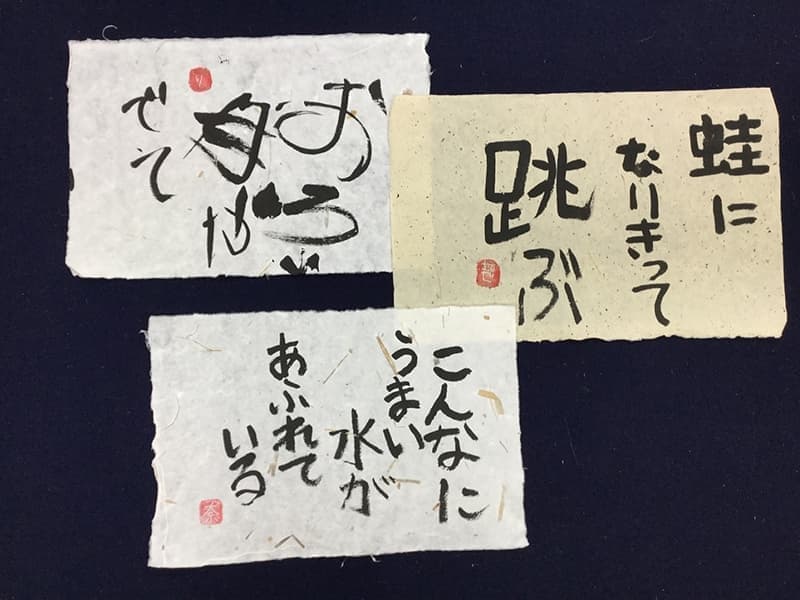 蛙に
なりきって
跳ぶ
月が
でて
こんなに
うまい
水が
あふれて
いる